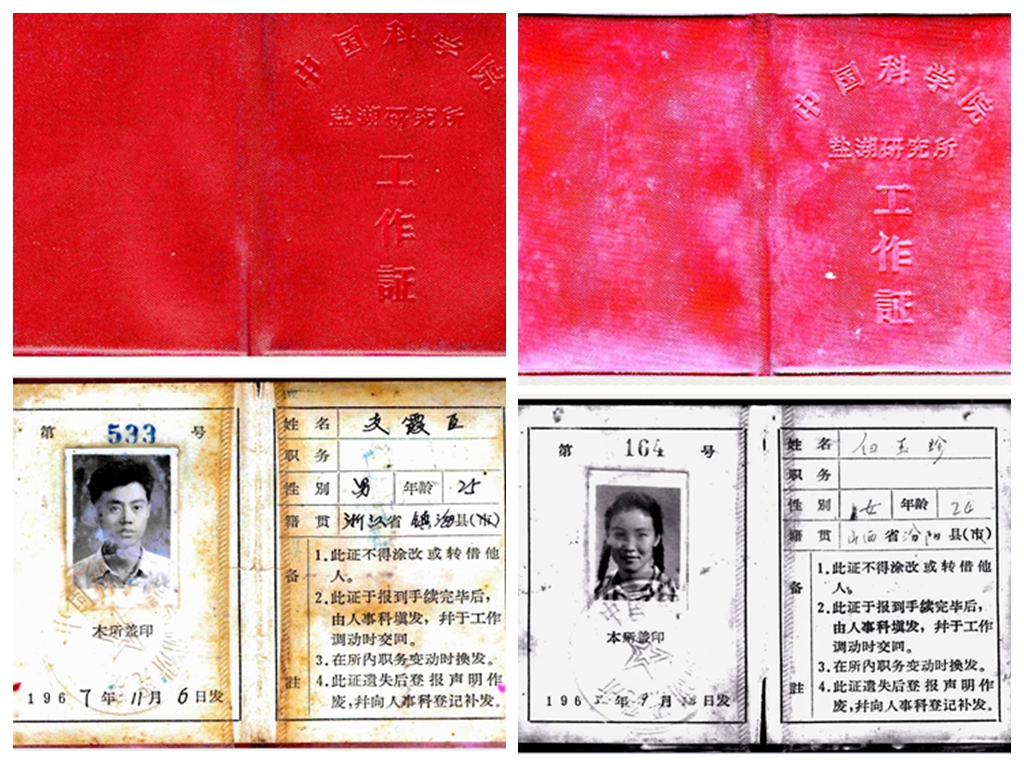 中国科学院
盐湖研究所
工作証
中国科学院
盐湖研究所
工作証
第 533 号
本所盖印
1967年11月6日发
姓名 文霞臣
职务
性别 男 年龄 25
籍贯 浙江省镇海县(市)
备註
1.此证不得涂改或转借他
人。
2.此证于报到手续完毕后,
由人事科填发,幷于工作
调动时交回。
3.在所内职务变动时换发。
4.此证遗失后登报声明作
废,幷向人事科登记补发。
第 164 号
本所盖印
196 年9月 日发
姓名 白玉珍
职务
性别 女 年龄 24
籍贯 山西省汾阳县(市)
备註
1.此证不得涂改或转借他
人。
2.此证于报到手续完毕后,
由人事科填发,幷于工作
调动时交回。
3.在所内职务变动时换发。
4.此证遗失后登报声明作
废,幷向人事科登记补发。